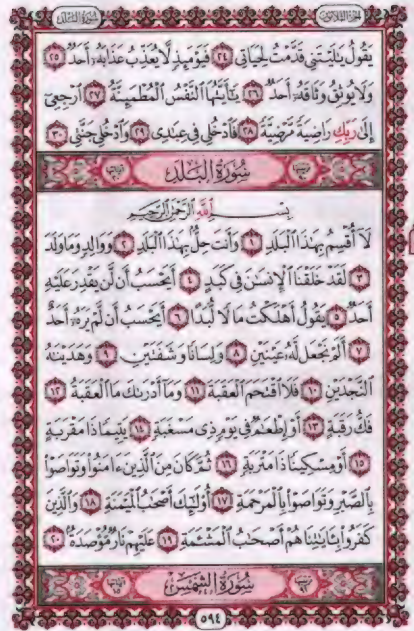 سُورَةُ البَلَدِ الجُزْءُ الثَّلَاثُونَ
يَقُولُ يَٰلَيْتَنِى قَدَّمْتُ لِحَيَاتِى ٢٤ فَيَوْمَئِذٍ لَّا يُعَذِّبُ عَذَابَهُۥٓ أَحَدٌ ٢٥
وَلَا يُوثِقُ وَثَاقَهُۥٓ أَحَدٌ ٢٦ يَٰٓأَيَّتُهَا ٱلنَّفْسُ ٱلْمُطْمَئِنَّةُ ٢٧ ٱرْجِعِىٓ
إِلَىٰ رَبِّكِ رَاضِيَةً مَّرْضِيَّةً ٢٨ فَٱدْخُلِى فِى عِبَٰدِى ٢٩ وَٱدْخُلِى جَنَّتِى ٣٠
سُورَةُ البَلَدِ
بِسْمِ ٱللَّهِ ٱلرَّحْمَٰنِ ٱلرَّحِيمِ
لَآ أُقْسِمُ بِهَٰذَا ٱلْبَلَدِ ١ وَأَنتَ حِلٌّۢ بِهَٰذَا ٱلْبَلَدِ ٢ وَوَالِدٍ وَمَا وَلَدَ
٣ لَقَدْ خَلَقْنَا ٱلْإِنسَٰنَ فِى كَبَدٍ ٤ أَيَحْسَبُ أَن لَّن يَقْدِرَ عَلَيْهِ
أَحَدٌ ٥ يَقُولُ أَهْلَكْتُ مَالًا لُّبَدًا ٦ أَيَحْسَبُ أَن لَّمْ يَرَهُۥٓ أَحَدٌ
٧ أَلَمْ نَجْعَل لَّهُۥ عَيْنَيْنِ ٨ وَلِسَانًا وَشَفَتَيْنِ ٩ وَهَدَيْنَٰهُ
ٱلنَّجْدَيْنِ ١٠ فَلَا ٱقْتَحَمَ ٱلْعَقَبَةَ ١١ وَمَآ أَدْرَىٰكَ مَا ٱلْعَقَبَةُ ١٢
فَكُّ رَقَبَةٍ ١٣ أَوْ إِطْعَٰمٌ فِى يَوْمٍ ذِى مَسْغَبَةٍ ١٤ يَتِيمًا ذَا مَقْرَبَةٍ
١٥ أَوْ مِسْكِينًا ذَا مَتْرَبَةٍ ١٦ ثُمَّ كَانَ مِنَ ٱلَّذِينَ ءَامَنُوا۟ وَتَوَاصَوْا۟
بِٱلصَّبْرِ وَتَوَاصَوْا۟ بِٱلْمَرْحَمَةِ ١٧ أُو۟لَٰٓئِكَ أَصْحَٰبُ ٱلْمَيْمَنَةِ ١٨ وَٱلَّذِينَ
كَفَرُوا۟ بِـَٔايَٰتِنَا هُمْ أَصْحَٰبُ ٱلْمَشْـَٔمَةِ ١٩ عَلَيْهِمْ نَارٌ مُّؤْصَدَةٌۢ ٢٠
سُورَةُ الشَّمْسِ
٥٩٤